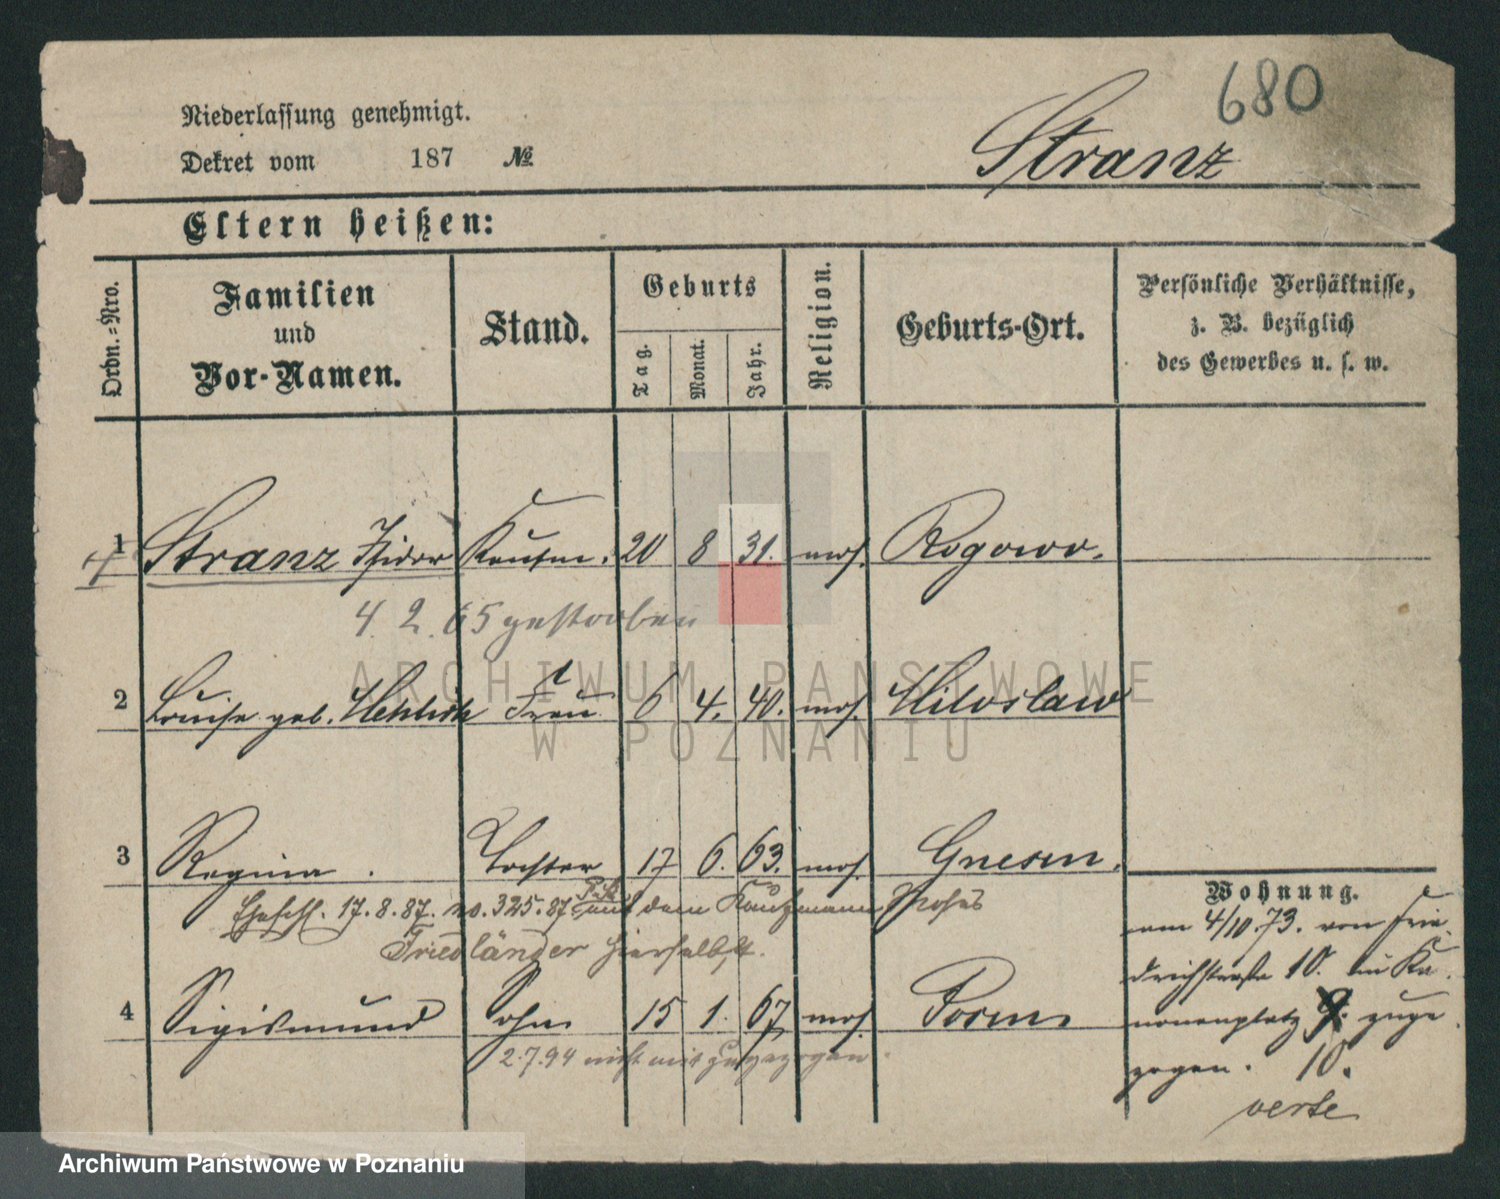 680
Niederlassung genehmigt.
Stranz
Dekret vom 187 №
Eltern heißen:
Ordn.-Nro.
Familien und Vor-Namen.
Stand.
Geburts
Tag.
Monat.
Jahr.
Religion.
Geburts-Ort.
Persönliche Verhältnisse,
z. B. bezüglich
des Gewerbes u. s. w.
1 Stranz Isidor Kaufm. 20 8 31. mos. Rogowo.
4. 2. 65 gestorben
2 Louise geb. Frau 6 4. 40. mos. Miloslaw
3 Regina. Tochter 17 6. 63. mos. Gnesen.
Ehesch. 17.8.87. no. 325.87 mit dem Kaufmann Moses
Friedländer hierselbst.
4 Sigismund Sohn 15 1. 67 mos. Posen
2.7.94 nicht mit zugezogen.
Wohnung.
am 4/10.73. von Frie-
drichstraße 10. zu Ka-
nonenplatz 9. zuge-
zogen. 10.
verte
ARCHIWUM PAŃSTWOWE
W POZNANIU
Archiwum Państwowe w Poznaniu